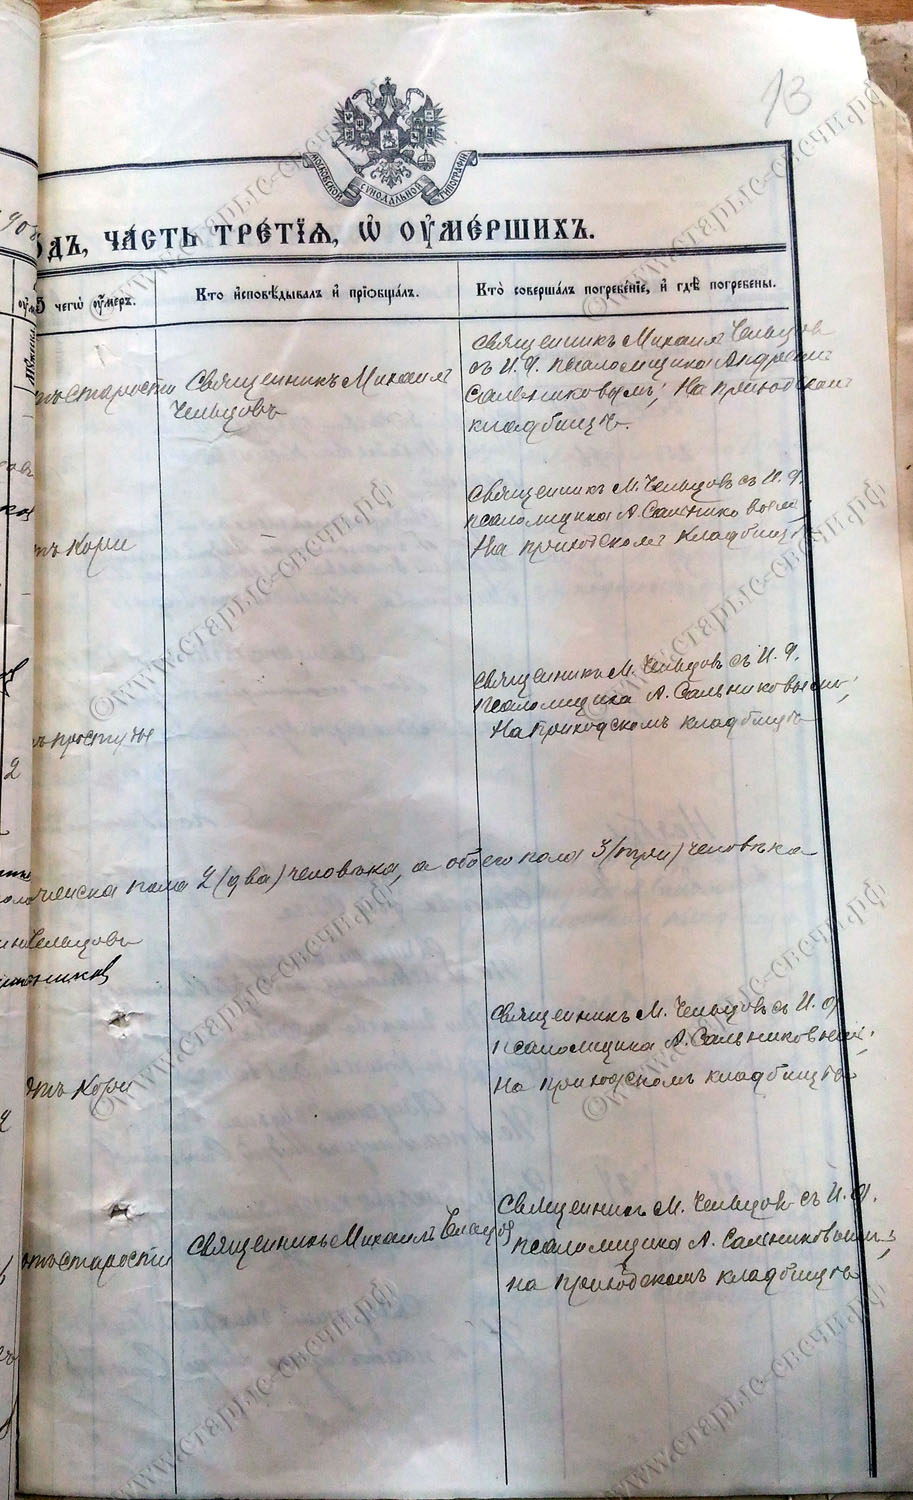 13
МОСКОВСКОЙ СѴНОДАЛЬНОЙ ТИПОГРАФІИ
908
одъ, ча́сть тре́тїѧ, ѡ҆ ᲂу҆ме́ршихъ.
ѿ чегѡ̀ ᲂу҆́меръ.
Кто̀ и҆сповѣ́дывалъ и҆ прїѻбща́лъ.
Кто̀ соверша́лъ погребе́нїе, и҆ гдѣ̀ погребены̀.
отъ старости
Священникъ Михаилъ
Чельцовъ
Священникъ Михаилъ Чельцов
съ И. Ф. псаломщика Андреем
Сальниковымъ; На приходском
кладбищѣ.
отъ Кори
-
Священникъ М. Чельцовъ съ И. Ф.
псаломщика А. Сальниковым;
На приходскомъ кладбищѣ
отъ простуды
-
Священникъ М. Чельцовъ съ И. Ф.
псаломщика А. Сальниковымъ;
На Приходскомъ кладбищѣ
2
женска пола 2 (два) человѣка, а обоего пола 3 (три) человѣка
Чельцовъ
Сальников
отъ Кори
Священникъ М. Чельцовъ съ И. Ф.
псаломщика А. Сальниковым;
на приходскомъ кладбищѣ
отъ старости
Священникъ Михаилъ Чельцов
Священникъ М. Чельцовъ съ И. Ф.
псаломщика А. Сальниковым;
на приходскомъ кладбищѣ
©www.старые-свечи.рф